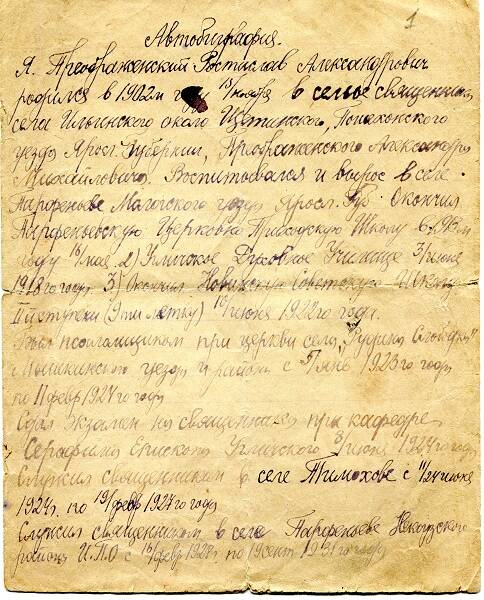 1
Автобиография.
Я. Преображенский Ростислав Александрович
родился в 1902м году 15/ноября в семье священника
села Ильинского около Щетинского, Пошехонского
уезда Яросл. Губернии, Преображенского Александра
Михайловича. Воспитывался и вырос в селе
Парфеньеве Мологского уезда Яросл. Губ. Окончил
Парфеньевскую Церковно Приходскую Школу в
году 16/мая. 2) Угличское Духовное Училище 3/июня
1918го года. 3) Окончил Советскую Школу
II й ступени 10/июня 1922го года.
Был псаломщиком при церкви села
Мышкинского уезда и района с 5/янв 1923го года
по 11 февр 1924го года
Сдал экзамен на священника при кафедре
Серафима Епископа Угличского 8/июня 1924го года
Служил священником в селе Тимохове с 11/24 июня
1924г. по 19/февр 1927го года
Служил священником в селе Парфеньеве Некоузского
района И.П.О с февр по 19сент 1931го года